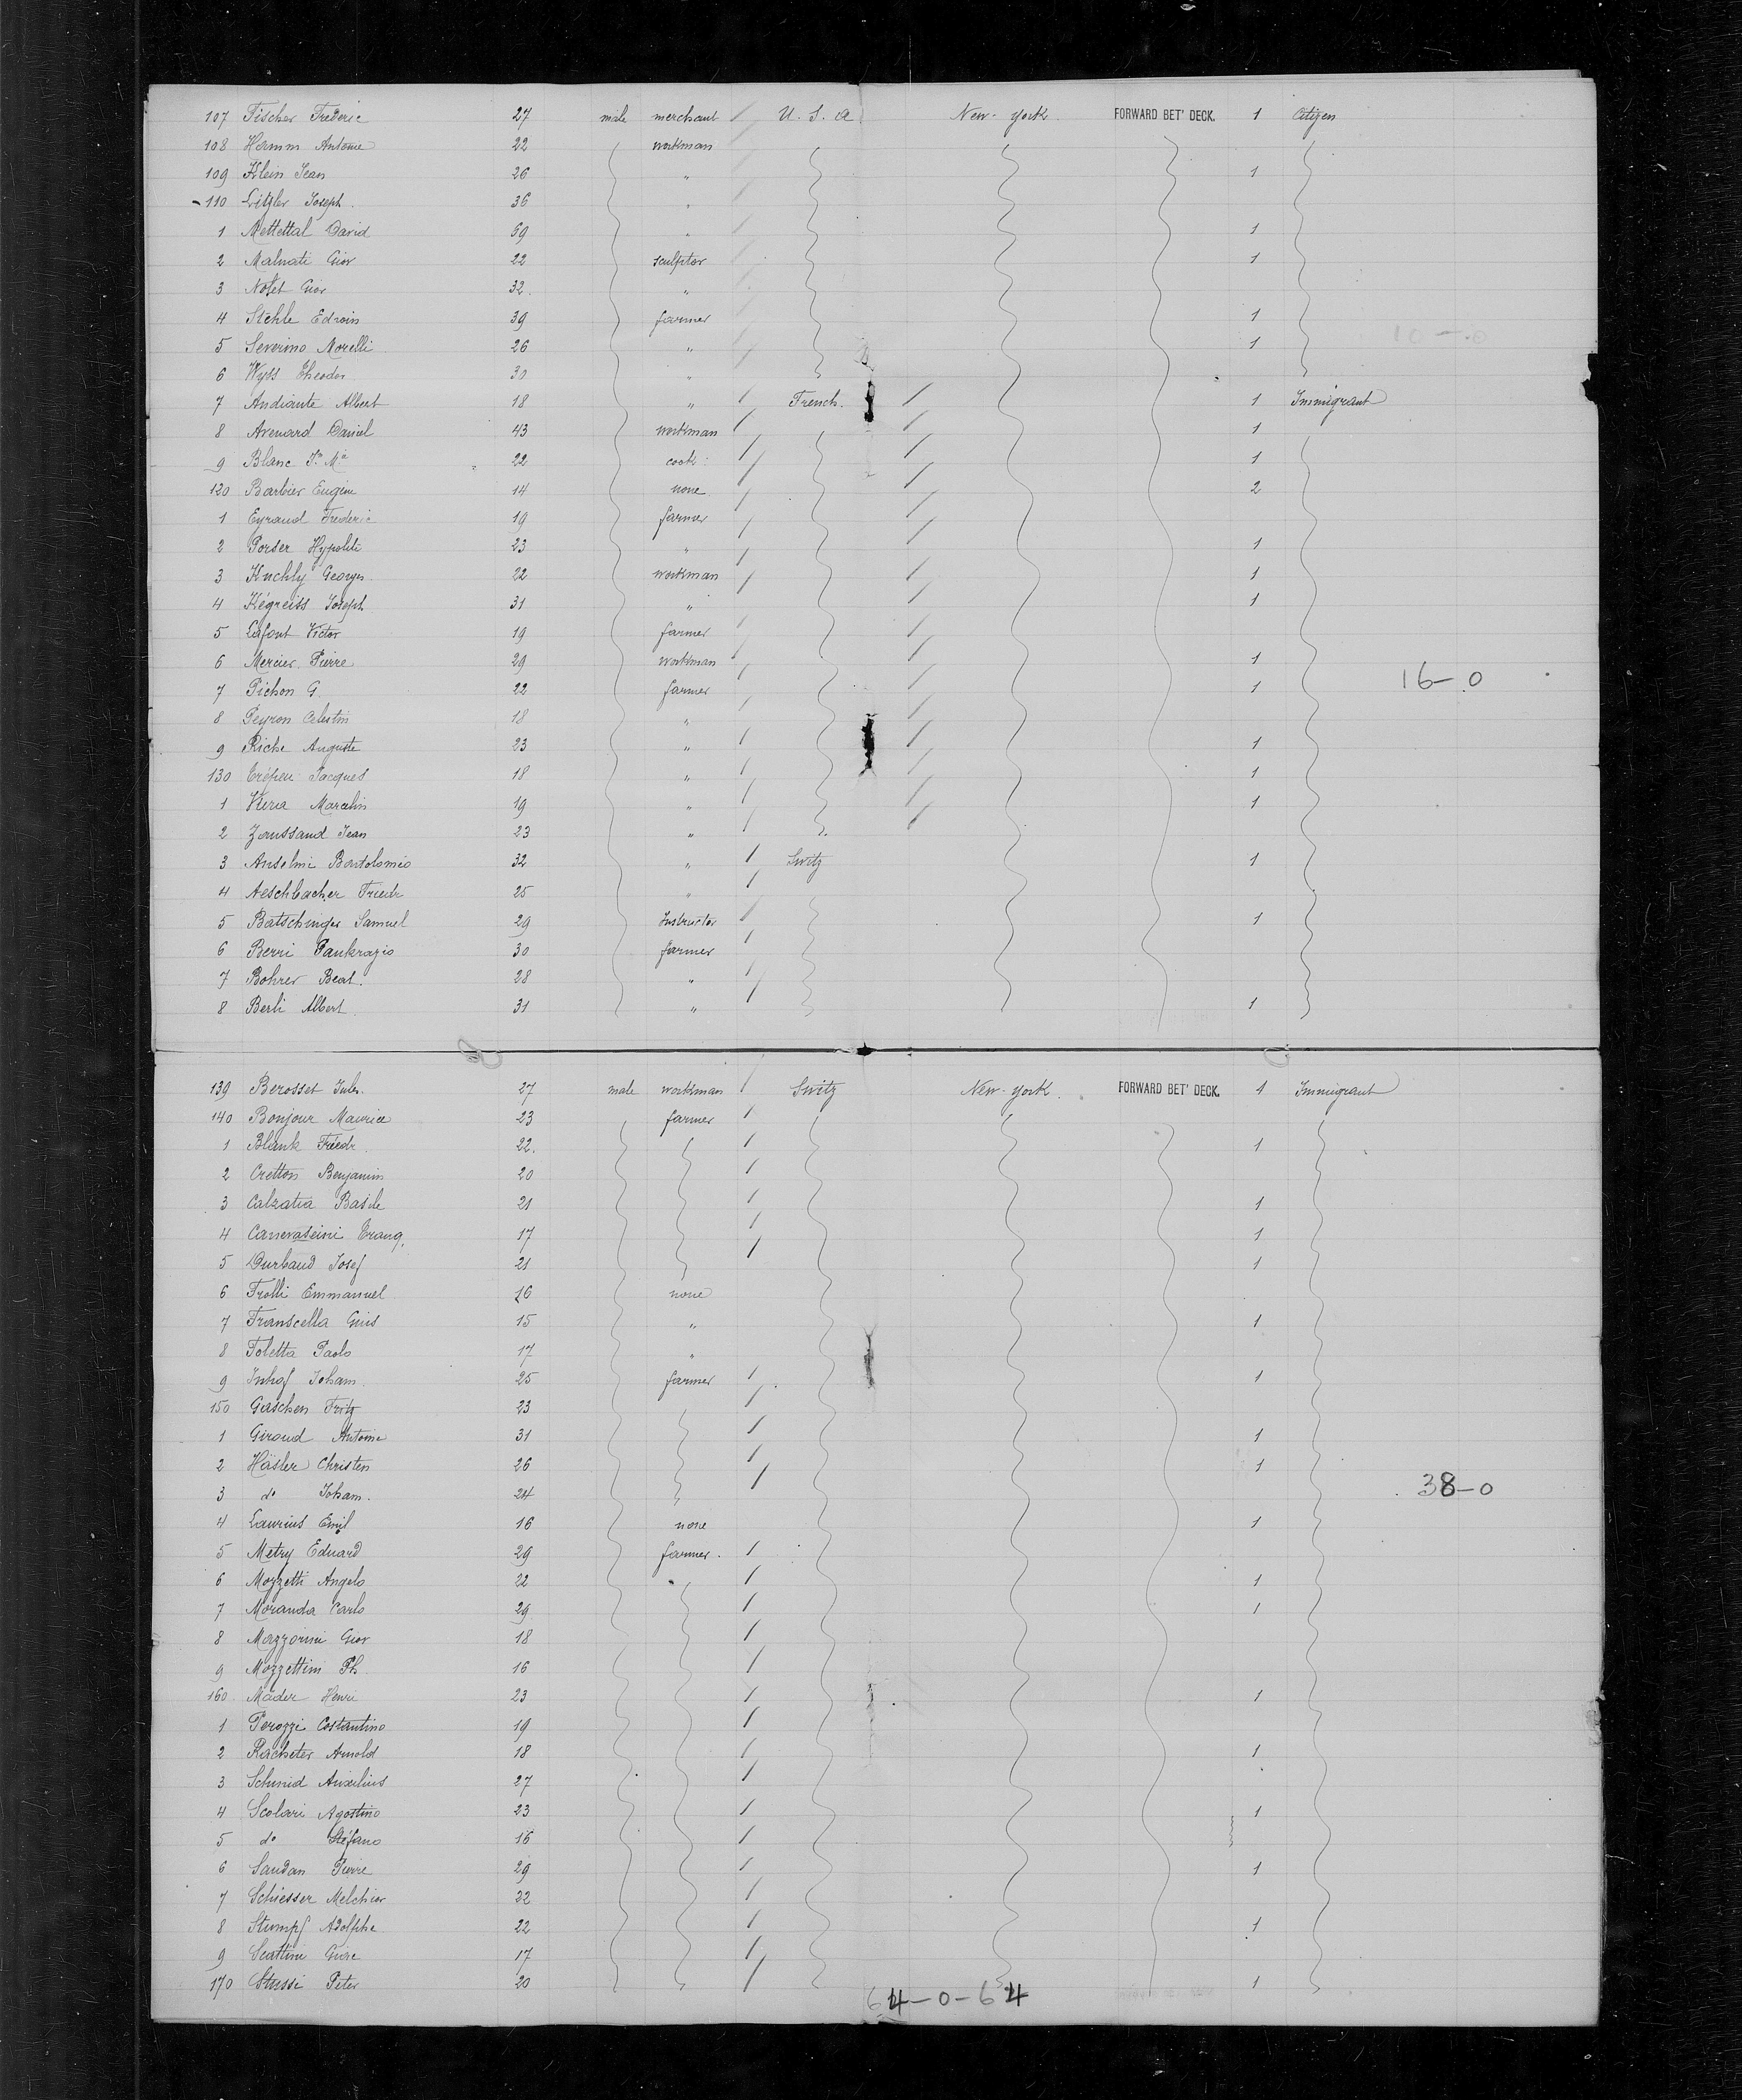 107 Fischer Frederic 27 male merchant U. S. A. New-York. FORWARD BET' DECK. 1 Citizen
108 Hamm Antoine 22 workman
109 Klein Jean 26 " 1
110 Litzler Joseph. 36 "
1 Mettetal David 69 " 1
2 Malnati Giov 22 sculptor 1
3 Giov 32. "
4 Stehle Edwin 39 farmer 1
5 Severino Morelli 26 " 1
10-0
6 Wyss Theodor 30 "
7 Andiante Albert 18 " French. 1 Immigrant
8 Avenard Daniel 43 workman 1
9 Blanc 22 cook 1
120 Barbier Eugène 14 none 2
1 Eyraud Frederic 19 farmer
2 Porser Hypolite 23 " 1
3 Kuchly Georges 22 workman 1
4 Kégreiss Joseph 31 " 1
5 Lafont Victor 19 farmer
6 Mercier Pierre 29 workman 1
7 Pichon G. 22 farmer 1 16-0
8 Peyron Celestin 18 "
9 Riche Auguste 23 " 1
130 Jacques 18 " 1
1 Marcelin 19 " 1
2 Zaussaud Jean 23 "
3 Anselmi Bartolomeo 32 " Switz 1
4 Aeschbacher Friedr 25 "
5 Batschinger Samuel 29 Instructor 1
6 Berri Pankrazio 30 farmer
7 Bohrer Beat. 28 "
8 Berli Albert 31 " 1
139 Berosset Jules. 27 male workman Switz New-York. FORWARD BET' DECK. 1 Immigrant
140 Bonjour Maurice 23 farmer
1 Blank Friedr. 22. 1
2 Cretton Benjamin 20
3 Calzatia Basile 21 1
4 Canevascini Tranq. 17 1
5 Durbaud Josef 21 1
6 Frolli Emmanuel 16 none
7 Franscella Guis 15 " 1
8 Foletta Paolo 17 "
9 Inhof Joham 25 farmer 1
150 Gaschen Fritz 23
1 Giroud Antoine 31 1
2 Häsler Christen 26 1
3 do Joham. 24 " 38-0
4 Laurius Emil 16 none 1
5 Metry Eduard 29 farmer.
6 Mozzetti Angelo 22 1
7 Moranda Carlo 29 1
8 Mazzorini Giov 18
9 Mozzettini Ph. 16
160 Mäder Henri 23 1
1 Perozzi Costantino 19
2 Racheter Arnold 18 1
3 Schmid Auxilius 27
4 Scolari Agostino 23 1
5 do Stéfano 16
6 Saudan Pierre 29 1
7 Schiesser Melchior 32
8 Stumpf Adolphe 22 1
9 Scattini 17
170 Stussi Peter 20 " 1
64-0-64